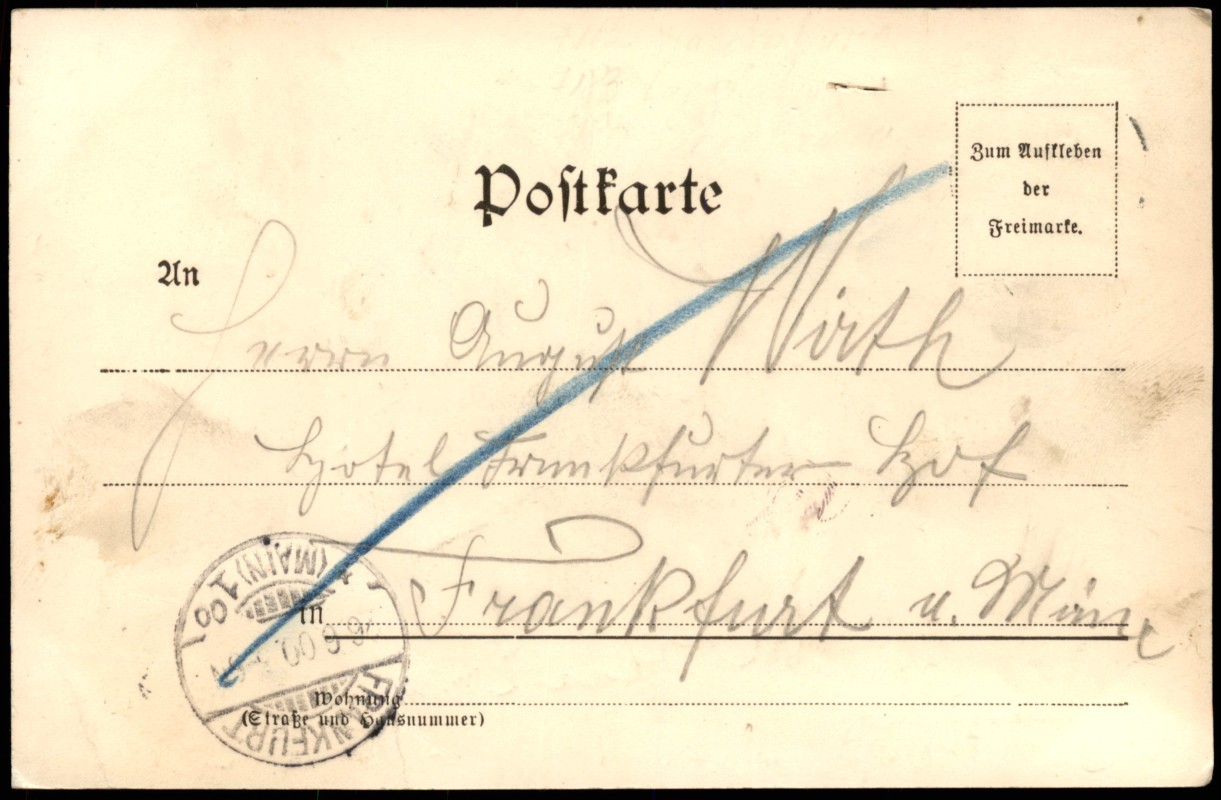 Postkarte
Zum Aufkleben
der
Freimarke.
An
Herrn August Wirth
Hotel Frankfurter Hof
in Frankfurt a. Main
Wohnung
(Straße und Hausnummer)
FRANKFURT
(MAIN) 1